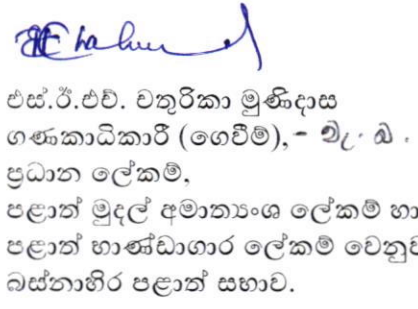 එස්.ඊ.එච්. චතුරිකා මුණිදාස
ගණකාධිකාරී (ගෙවීම්),- වැ. බ.
ප්‍රධාන ලේකම්,
පළාත් මුදල් අමාත්‍යංශ ලේකම් හා
පළාත් භාණ්ඩාගාර ලේකම් වෙනුව
බස්නාහිර පළාත් සභාව.